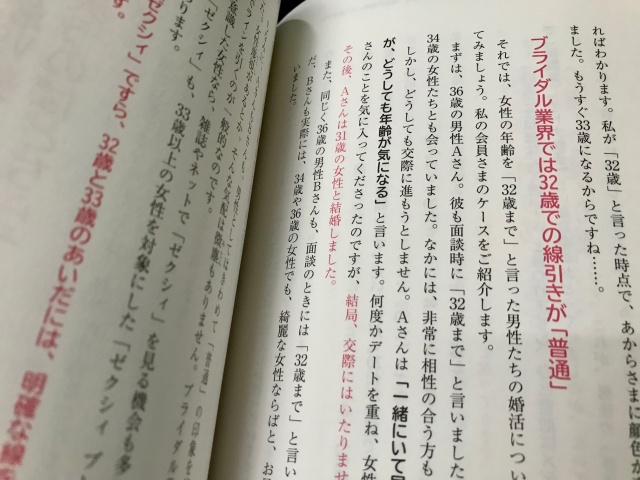 ればわかります。私が「32歳」と言った時点で、あからさまに顔色が
ました。もうすぐ33歳になるからですね……。
ブライダル業界では32歳での線引きが「普通」
それでは、女性の年齢を「32歳まで」と言った男性たちの婚活につい
てみましょう。私の会員さまのケースをご紹介します。
まずは、36歳の男性Aさん。彼も面談時に「32歳まで」と言いました
34歳の女性たちとも会っていました。なかには、非常に相性の合う方も
しかし、どうしても交際に進もうとしません。Aさんは「一緒にいて
が、どうしても年齢が気になる」と言います。何度かデートを重ね、女
さんのことを気に入ってくださったのですが、結局、交際にはいたりませ
その後、Aさんは31歳の女性と結婚しました。
また、同じく36歳の男性Bさんも、面談のときには「32歳まで」と言い
だ、Bさんも実際には、34歳や36歳の女性でも、綺麗な女性ならばと、お
いました。
意識した女性なら、雑誌やネットで「ゼクシィ」を見る機会も多
ります。
「ゼクシィ」も、33歳以上の女性を対象にした「ゼクシィ プ
ゼクシィ」ですら、32歳と33歳のあいだには、明確な線を
す。